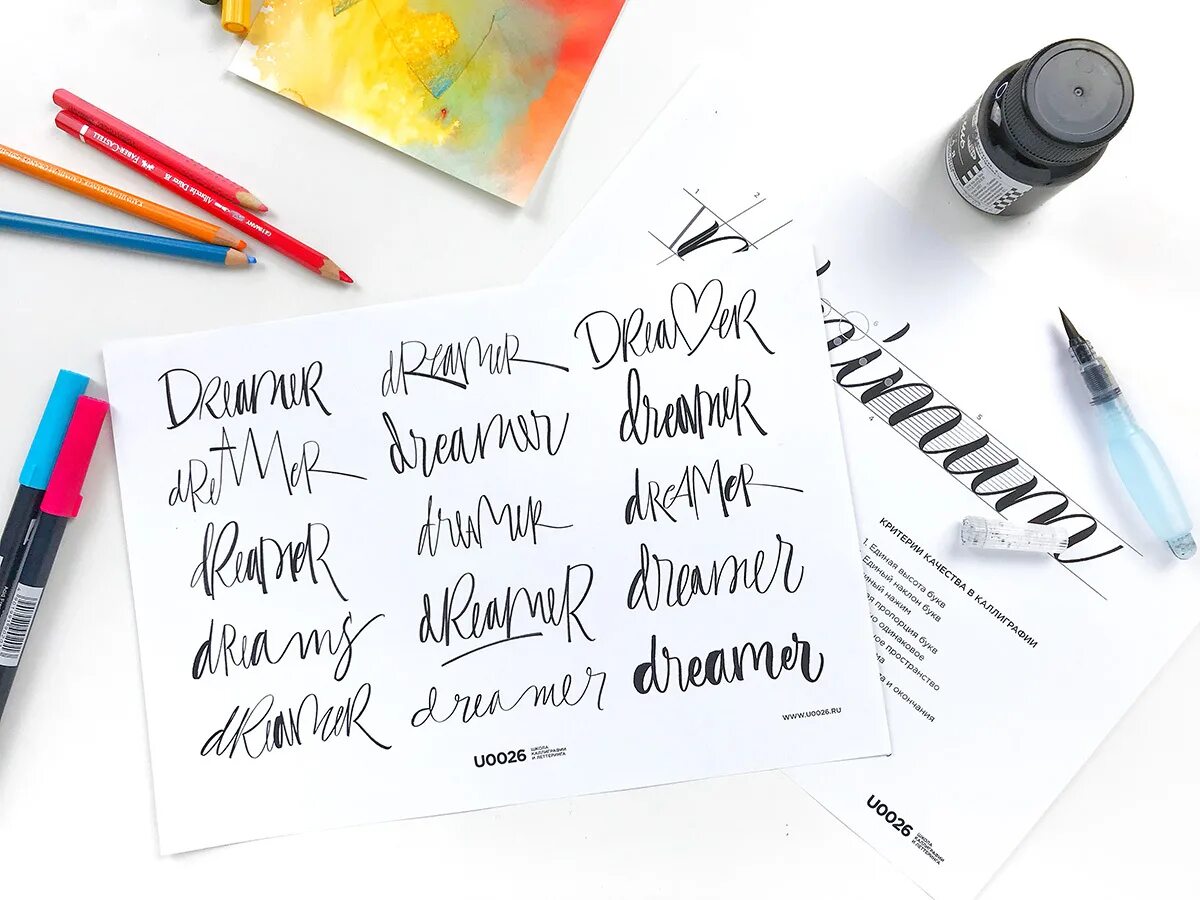 FABER-CASTELL
Albrecht Dürer
GERMANY
1 2
6
4 5
Dreamer dreamer Drea♡er
dreamer dreamer dreamer
dreamer dreamer dreamer
dreams dreamer dreamer
dreamer dreamer dreamer
WWW.U0026.RU
U0026 ШКОЛА
КАЛЛИГРАФИИ
И ЛЕТТЕРИНГА
imum
КРИТЕРИИ КАЧЕСТВА В КАЛЛИГРАФИИ
1. Единая высота букв
Единый наклон букв
нажим
пропорция букв
одинаковое
пространство
и окончания
U0026 ШКОЛА
КАЛЛИГРАФИИ
И ЛЕТТЕРИНГА